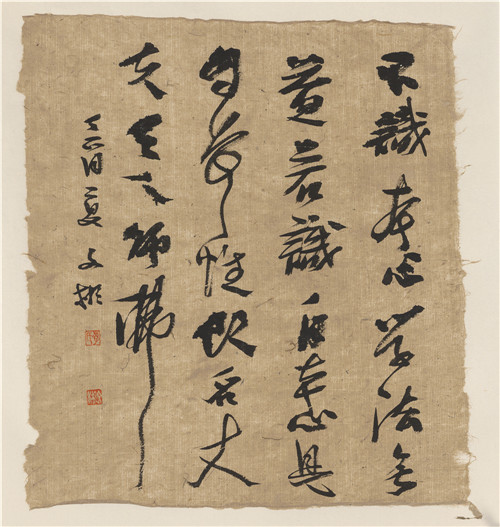 不識本心學法無
益若識自本心見
自本性即名丈
夫天人師佛
夏文